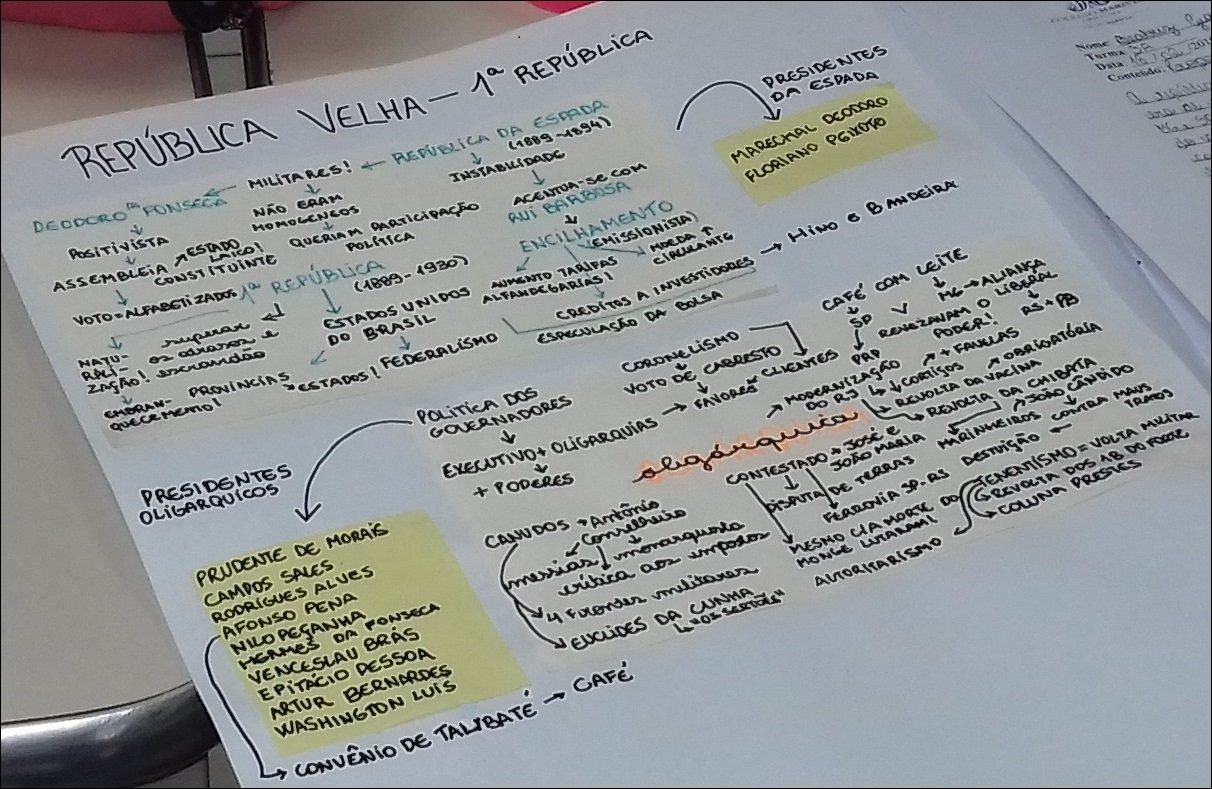 REPÚBLICA VELHA — 1ª REPÚBLICA
PRESIDENTES
DA ESPADA
MARECHAL DEODORO
FLORIANO PEIXOTO
MILITARES! ← REPÚBLICA DA ESPADA
(1889-1894)
DEODORO DA FONSECA
NÃO ERAM
HOMOGENEOS
INSTABILIDADE
POSITIVISTA
QUERIAM PARTICIPAÇÃO
POLÍTICA
ACENTUA-SE COM
RUI BARBOSA
ASSEMBLEIA ↗ ESTADO
LAICO!
CONSTITUINTE
ENCILHAMENTO
(EMISSIONISTA)
→ HINO E BANDEIRA
VOTO = ALFABETIZADOS
1ª REPÚBLICA
(1889-1930)
AUMENTO TARIFAS
ALFANDEGARIAS!
MOEDA ↑
CIRCULANTE
NATU-
RALI-
ZAÇÃO!
superar
os atrasos e
escravidão
ESTADOS UNIDOS
DO BRASIL
CREDITOS A INVESTIDORES
ESPECULAÇÃO DA BOLSA
EMBRAN-
QUECIMENTO!
PROVINCIAS
→ ESTADOS!
FEDERALISMO
CAFÉ COM LEITE
SP V MG → ALIANÇA
LIBERAL
REVEZAVAM O
PODER!
RS + PB
PRP
CORONELISMO
VOTO DE CABRESTO
FAVORES CLIENTES
POLITICA DOS
GOVERNADORES
EXECUTIVO + OLIGARQUIAS →
+ PODERES
oligárquica
→ MODERNIZAÇÃO
DO RJ
↳ CORTIÇOS ↗ + FAVELAS
→ REVOLTA DA VACINA ↗ OBRIGATÓRIA
→ REVOLTA DA CHIBATA
↗ JOÃO CÂNDIDO
MARINHEIROS CONTRA MAUS
TRATOS
CONTESTADO → JOSÉ E
JOÃO MARIA
DISPUTA DE TERRAS
FERROVIA SP-RS DESTUIÇÃO ←
MESMO C/A MORTE DO
MONGE LUTARAM!
TENENTISMO = VOLTA MILITAR
↳ REVOLTA DOS 18 DO FORTE
↳ COLUNA PRESTES
AUTORITARISMO
CANUDOS → Antônio
Conselheiro
messias monarquista
crítica aos impostos
4 frontes militares
EUCLIDES DA CUNHA
↳ "OS SERTÕES"
PRESIDENTES
OLIGARQUICOS
PRUDENTE DE MORAIS
CAMPOS SALES
RODRIGUES ALVES
AFONSO PENA
NILO PEÇANHA
HERMES DA FONSECA
VENCESLAU BRÁS
EPITÁCIO PESSOA
ARTUR BERNARDES
WASHINGTON LUÍS
→ CONVÊNIO DE TAUBATÉ → CAFÉ
Nome
Turma
Data
Conteúdo